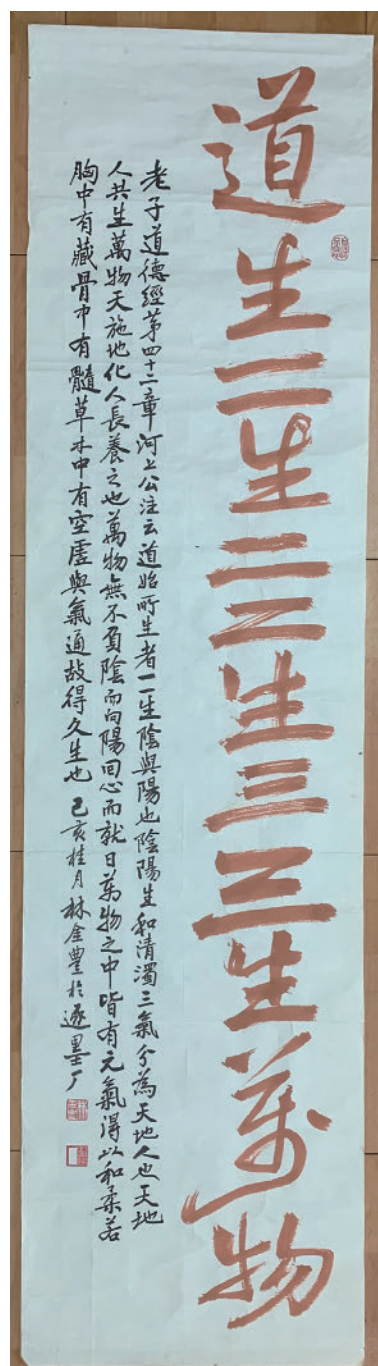 道生一一生二二生三三生萬物
老子道德經第四十二章河上公注云道始所生者一一生陰與陽也陰陽生和清濁三氣分為天地人也天地
人共生萬物天施地化人長養之也萬物無不負陰而向陽回心而就日萬物之中皆有元氣得以和柔若
胸中有藏骨中有髓草木中有空虛與氣通故得久生也 己亥桂月林金豐於逐墨厂